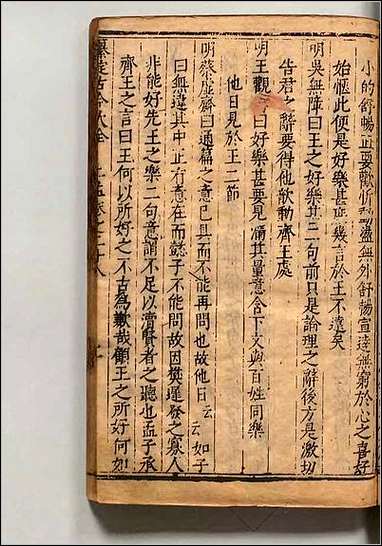 小的舒暢正要歡忻動盪無外舒暢宣達無窮於心之喜好
始愜此便是好樂甚正幾言於王不遠矣
明吳無障曰王之好樂甚二句前只是論理之辭後方是激切
告君之辭要得他歆動齊王處
明王觀 曰好樂甚要見滿其量意含下文與百姓同樂
他日見於王二節
明蔡虛齋曰通篇之意已具而不能再問也故他日云云如子
曰無違其中正有意在而懿子不能問故因樊遲發之寡人
非能好先王之樂二句意謂不足以瀆賢者之聽也孟子承
齊王之言曰王何以所好之不古為歉哉顧王之所好何如
古今大全 上孟卷之二 十八